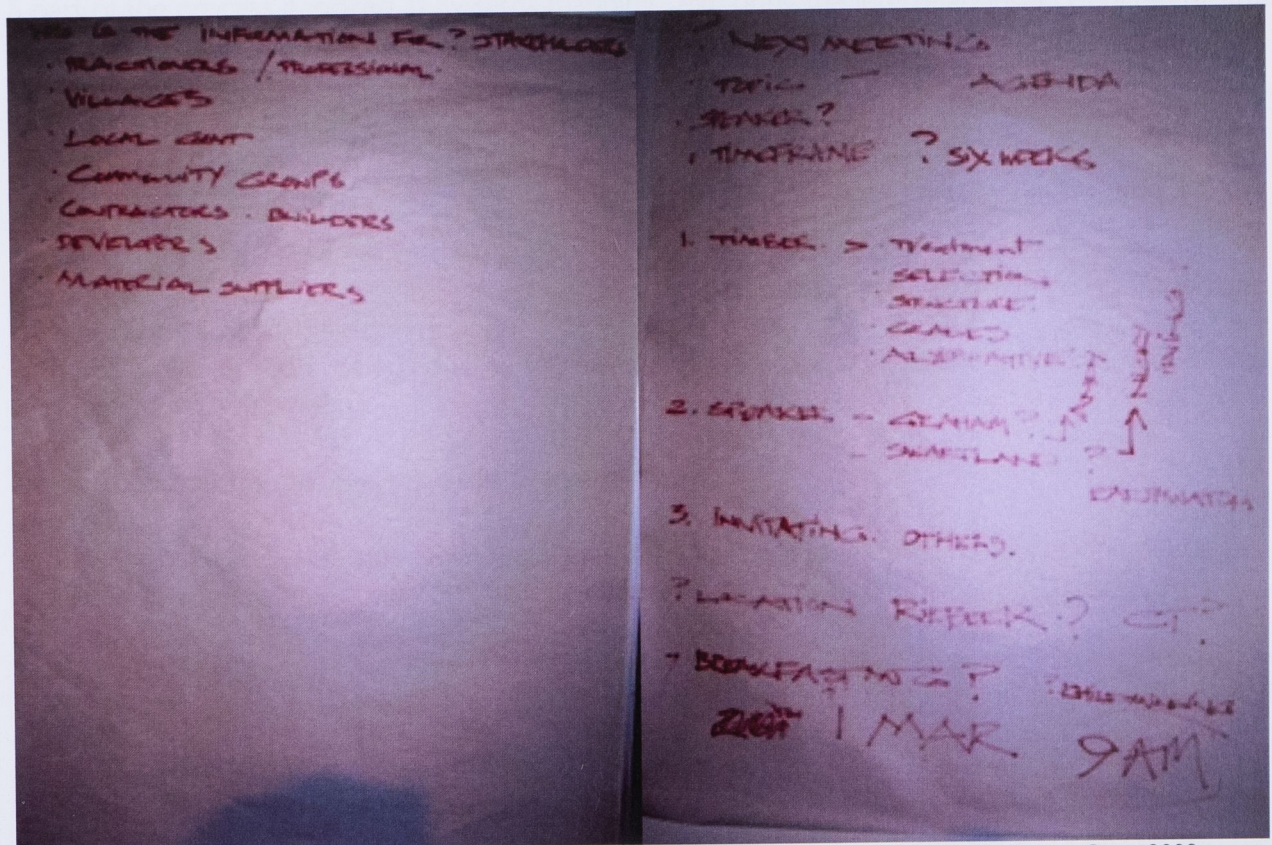 WHO IS THE INFORMATION FOR? STAKEHOLDERS
· PRACTIONERS / PROFESSIONAL
· VILLAGES
· LOCAL GOVT
· COMMUNITY GROUPS
· CONTRACTORS · BUILDERS
· DEVELOPERS
· MATERIAL SUPPLIERS
? NEXT MEETING
· TOPIC — AGENDA
· SPEAKER?
· TIMEFRAME ? SIX WEEKS
1. TIMBER > Treatment
· SELECTION
· STRUCTURE
· GRADES
· ALTERNATIVE
2. SPEAKER - GRAHAM?
- SWARTLAND ?
3. INVITATING OTHERS.
? LOCATION RIEBEEK ? CT?
→ BREAKFASTING ?
1 MAR 9AM